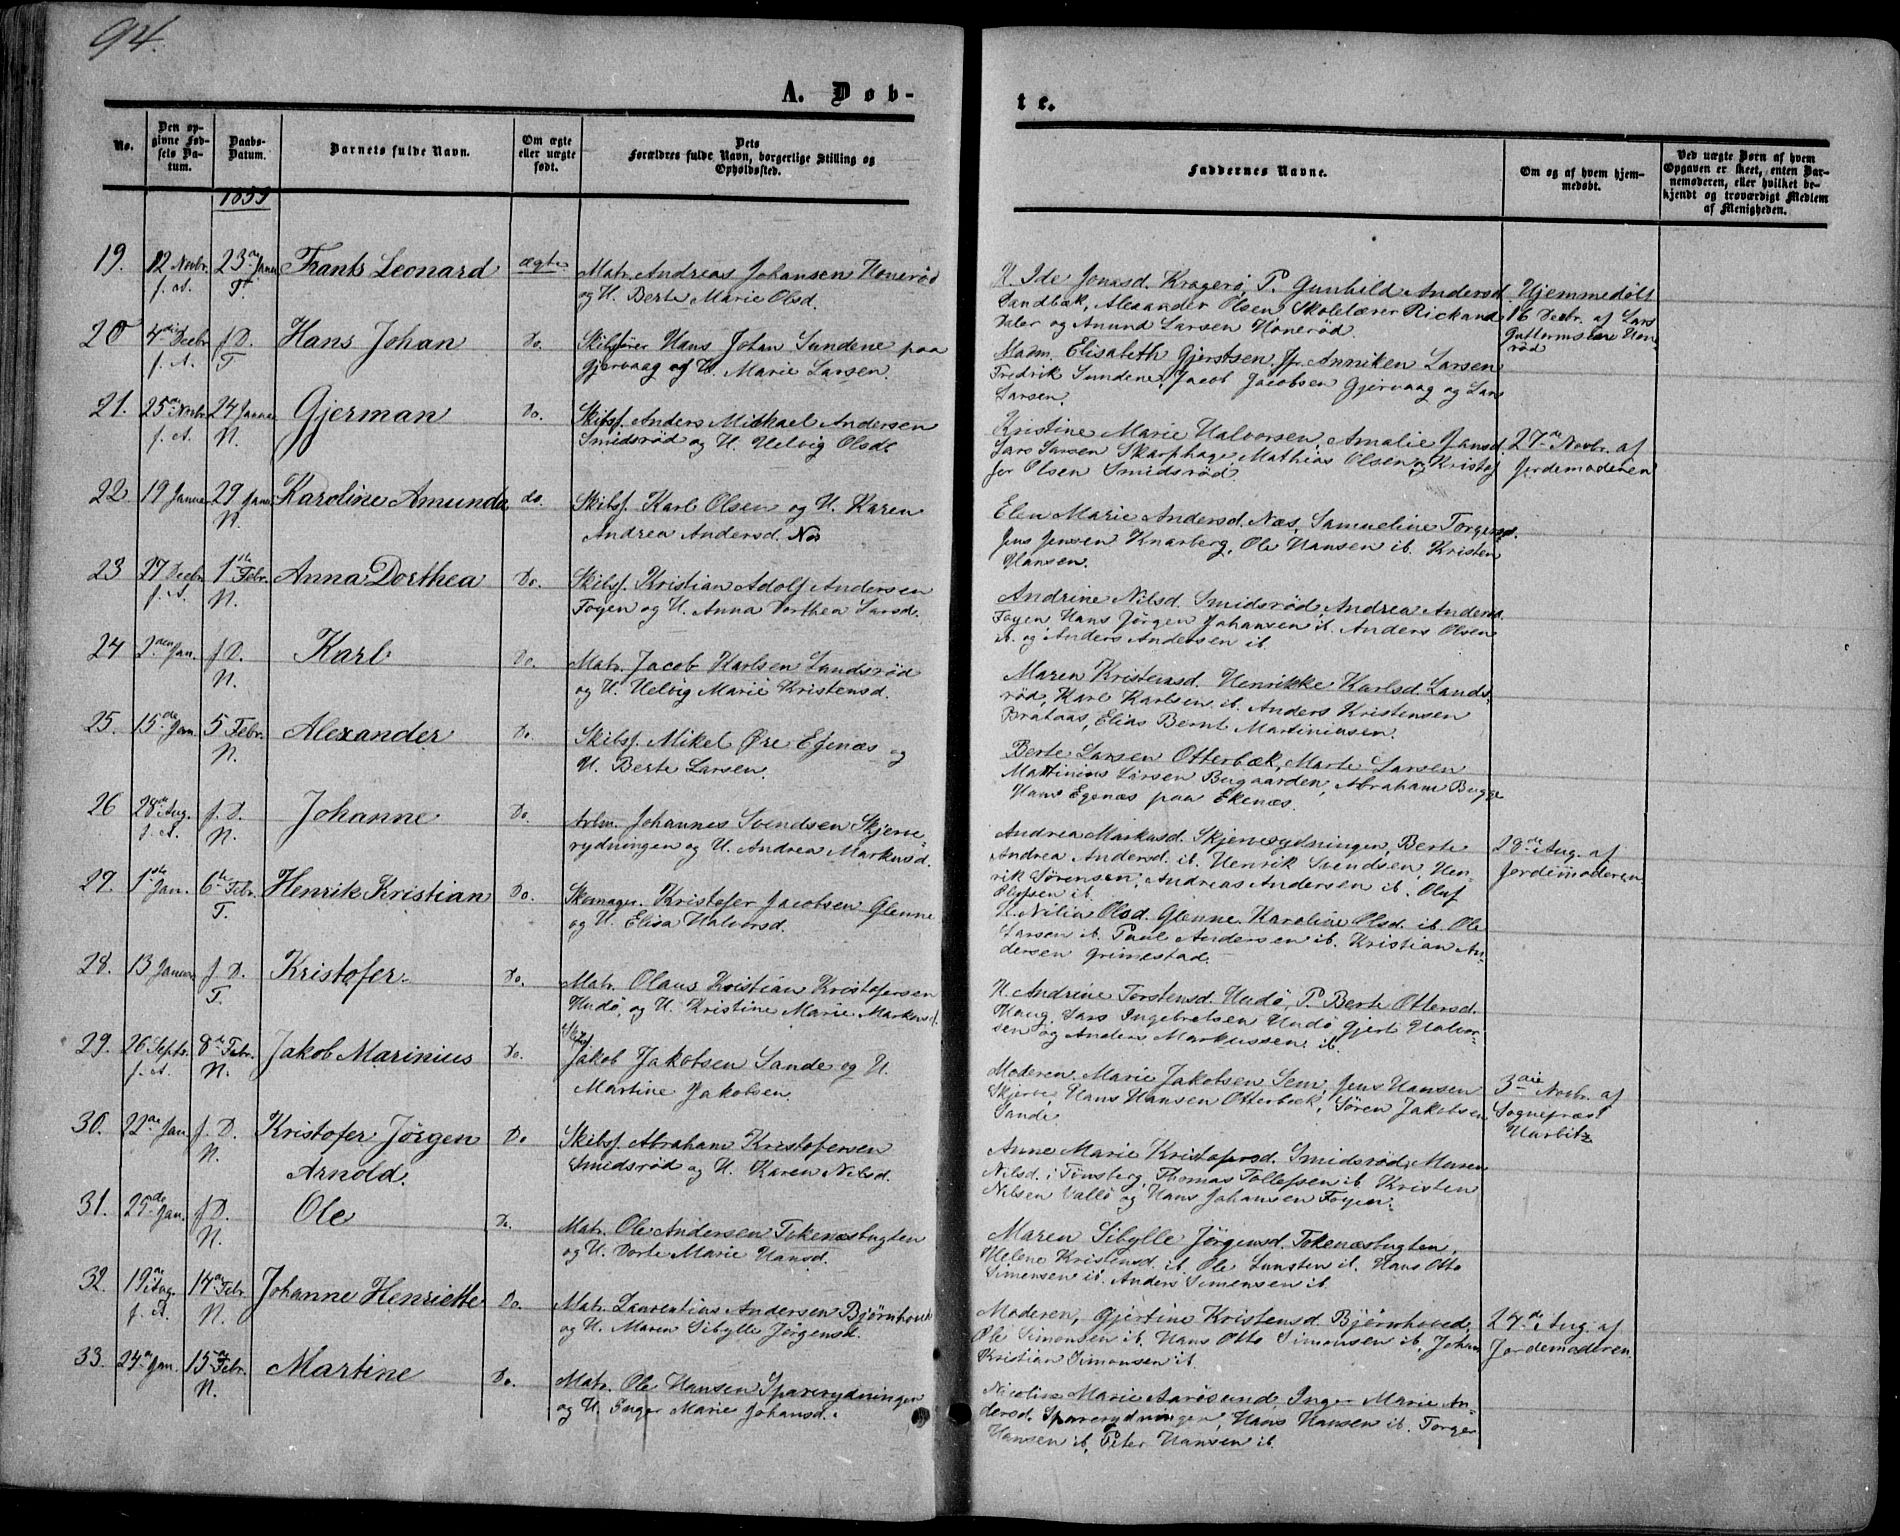 94.
A. Døb-
te.
No.
Den op-
givne Fød-
sels Da-
tum.
Daabs-
Datum.
Barnets fulde Navn.
Om ægte
eller uægte
født.
Dets
Forældres fulde Navn, borgerlige Stilling og
Opholdssted.
Faddernes Navne.
Om og af hvem hjem-
medøbt.
Ved uægte Børn af hvem
Opgaven er skeet, enten Bar-
nemoderen, eller hvilket be-
kjendt og troværdigt Medlem
af Menigheden.
1859
19. 12 Novbr. f. A. 23de Januar T. Frants Leonard ægte
Matr. Andreas Johansen Honerød
og H. Berte Marie Olsd.
H. Ide Jonasd. Kragerø, P. Gunhild Andersd.
Sandbæk, Alexander Olsen, Skolelærer Rickard
Daler og Anund Larsen Honerød.
Hjemmedøbt
16 Decbr. af Lars
Guttormsen Hon-
rød
20 4de Decbr. f. A. f. D. T. Hans Johan Do.
Skibsfører Hans Johan Sundene paa
Gjervaag og H. Marie Larsen.
Madm. Elisabeth Gjertsen, Jfr. Anniken Larsen
Fredrik Sundene, Jacob Jacobsen Gjervaag og Lars
Larsen.
21. 25de Novbr. f. A. 24 Januar N. Gjerman Do.
Skibsf. Anders Michael Andersen
Smidsrød og H. Helvig Olsd.
Kristine Marie Halvorsen, Amalie Jansd.
Lars Larsen Skarphage Mathias Olsen og Kristof
fer Olsen Smidsrød.
27de Novbr. af
Jordemoderen
22. 19 Januar 29 Januar N. Karoline Amunda do.
Skibsf. Karl Olsen og H. Karen
Andrea Andersd. Næs
Elen Marie Andersd. Næs, Samueline Torgersd.
Jens Jensen Knarberg, Ole Hansen ib. Kristen
Hansen.
23 27 Decbr. f. A. 1ste Febr. N. Anna Dorthea Do.
Skibsf. Kristian Adolf Andersen
Foyen og H. Anna Dorthea Larsd.
Andrine Nilsd. Smidsrød, Andrea Andersd.
Foyen, Hans Jørgen Johansen ib. Anders Olsen
ib. og Anders Andersen ib.
24 2den Jan. f. D. N. Karl Do.
Matr. Jacob Karlsen Landsrød
og H. Helvig Marie Kristensd.
Maren Kristensd. Henrikke Karlsd. Lands-
rød, Karl Karlsen ib. Anders Kristensen
Brataas, Elias Bernt Martiniusen.
25. 15de Jan. 5 Febr. N. Alexander Do.
Skibsf. Mikel Øre Egenæs og
H. Berte Larsen.
Berte Larsen Otterbæk, Marte Larsen
Martinius Larsen Bugaarden, Abraham Bugge
Hans Egenæs paa Ekenæs.
26 28de Aug. f. A. f. D. N. Johanne Do.
Arbm. Johannes Svendsen Skjerve
rydningen og H. Andrea Markusd.
Andrea Markusd. Skjerverydningen, Berte
Andrea Andersd. ib. Henrik Svendsen, Hen-
rik Sørensen, Andreas Andersen ib. Oluf
Olufsen ib.
29de Aug. af
Jordemoderen
27. 1ste Jan. 6te Febr. T. Henrik Kristian Do.
Skomager. Kristofer Jacobsen Glenne
og H. Elisa Halvorsd.
H. Nilia Olsd. Glenne. Karoline Olsd. ib. Ole
Larsen ib. Paul Andersen ib. Kristian An-
dersen Grimestad.
28. 13 Januar f. D. T. Kristofer Do.
Matr. Olaus Kristian Kristofersen
Hudø, og H. Kristine Marie Markusd.
H. Andrine Torstensd. Hudø, P. Berte Ottersd.
Haug. Lars Ingebretsen Hudø Gjert Halvor-
sen og Anders Markussen ib.
29. 26 Septr. f. A. 8de Febr. N. Jakob Marinius Do.
Skibsf.
Jakob Jakobsen Sande og H.
Martine Jakobsen.
Moderen. Marie Jakobsen Sem, Jens Hansen
Skjerve, Hans Hansen Otterbæk, Søren Jakobsen
Sande
3die Novbr. af
Sognepræst
Harbitz
30. 22de Jan. f. D. N. Kristofer Jørgen
Arnold. Do
Skibsf. Abraham Kristofersen
Smidsrød og H. Karen Nilsd.
Anne Marie Kristofersd. Smidsrød, Maren
Nilsd. i Tønsberg, Thomas Tollefsen ib. Kristen
Nilsen Vallø og Hans Johansen Foyen.
31. f. D. N. Ole Do.
Matr. Ole Andersen Tokenæsbugten
og H. Dorte Marie Hansd.
Maren Sibylle Jørgensd. Tokenæsbugten,
Helene Kristensd. ib. Ole ib. Hans Otto
Simensen ib. Anders Simensen ib.
32. 19de Aug. f. A. 14de Febr. N. Johanne Henriette Do.
Matr. Laurentius Andersen Bjørnhoved
og H. Maren Sibylle Jørgensd.
Moderen, Gjertine Kristensd Bjørnhoved,
Ole Simonsen ib. Hans Otto Simonsen ib, Johan
Kristian Simonsen ib.
24de Aug. af
Jordemoderen.
33. 24de Jan. 15de Febr. N. Martine Do.
Matr. Ole Hansen Sparerydningen
og H. Inger Marie Johansd.
Nicoline Marie Aarøsund, Inger Marie An-
dersd. Sparerydningen, Hans Hansen ib. Torger
Hansen ib, Peter Hansen ib.